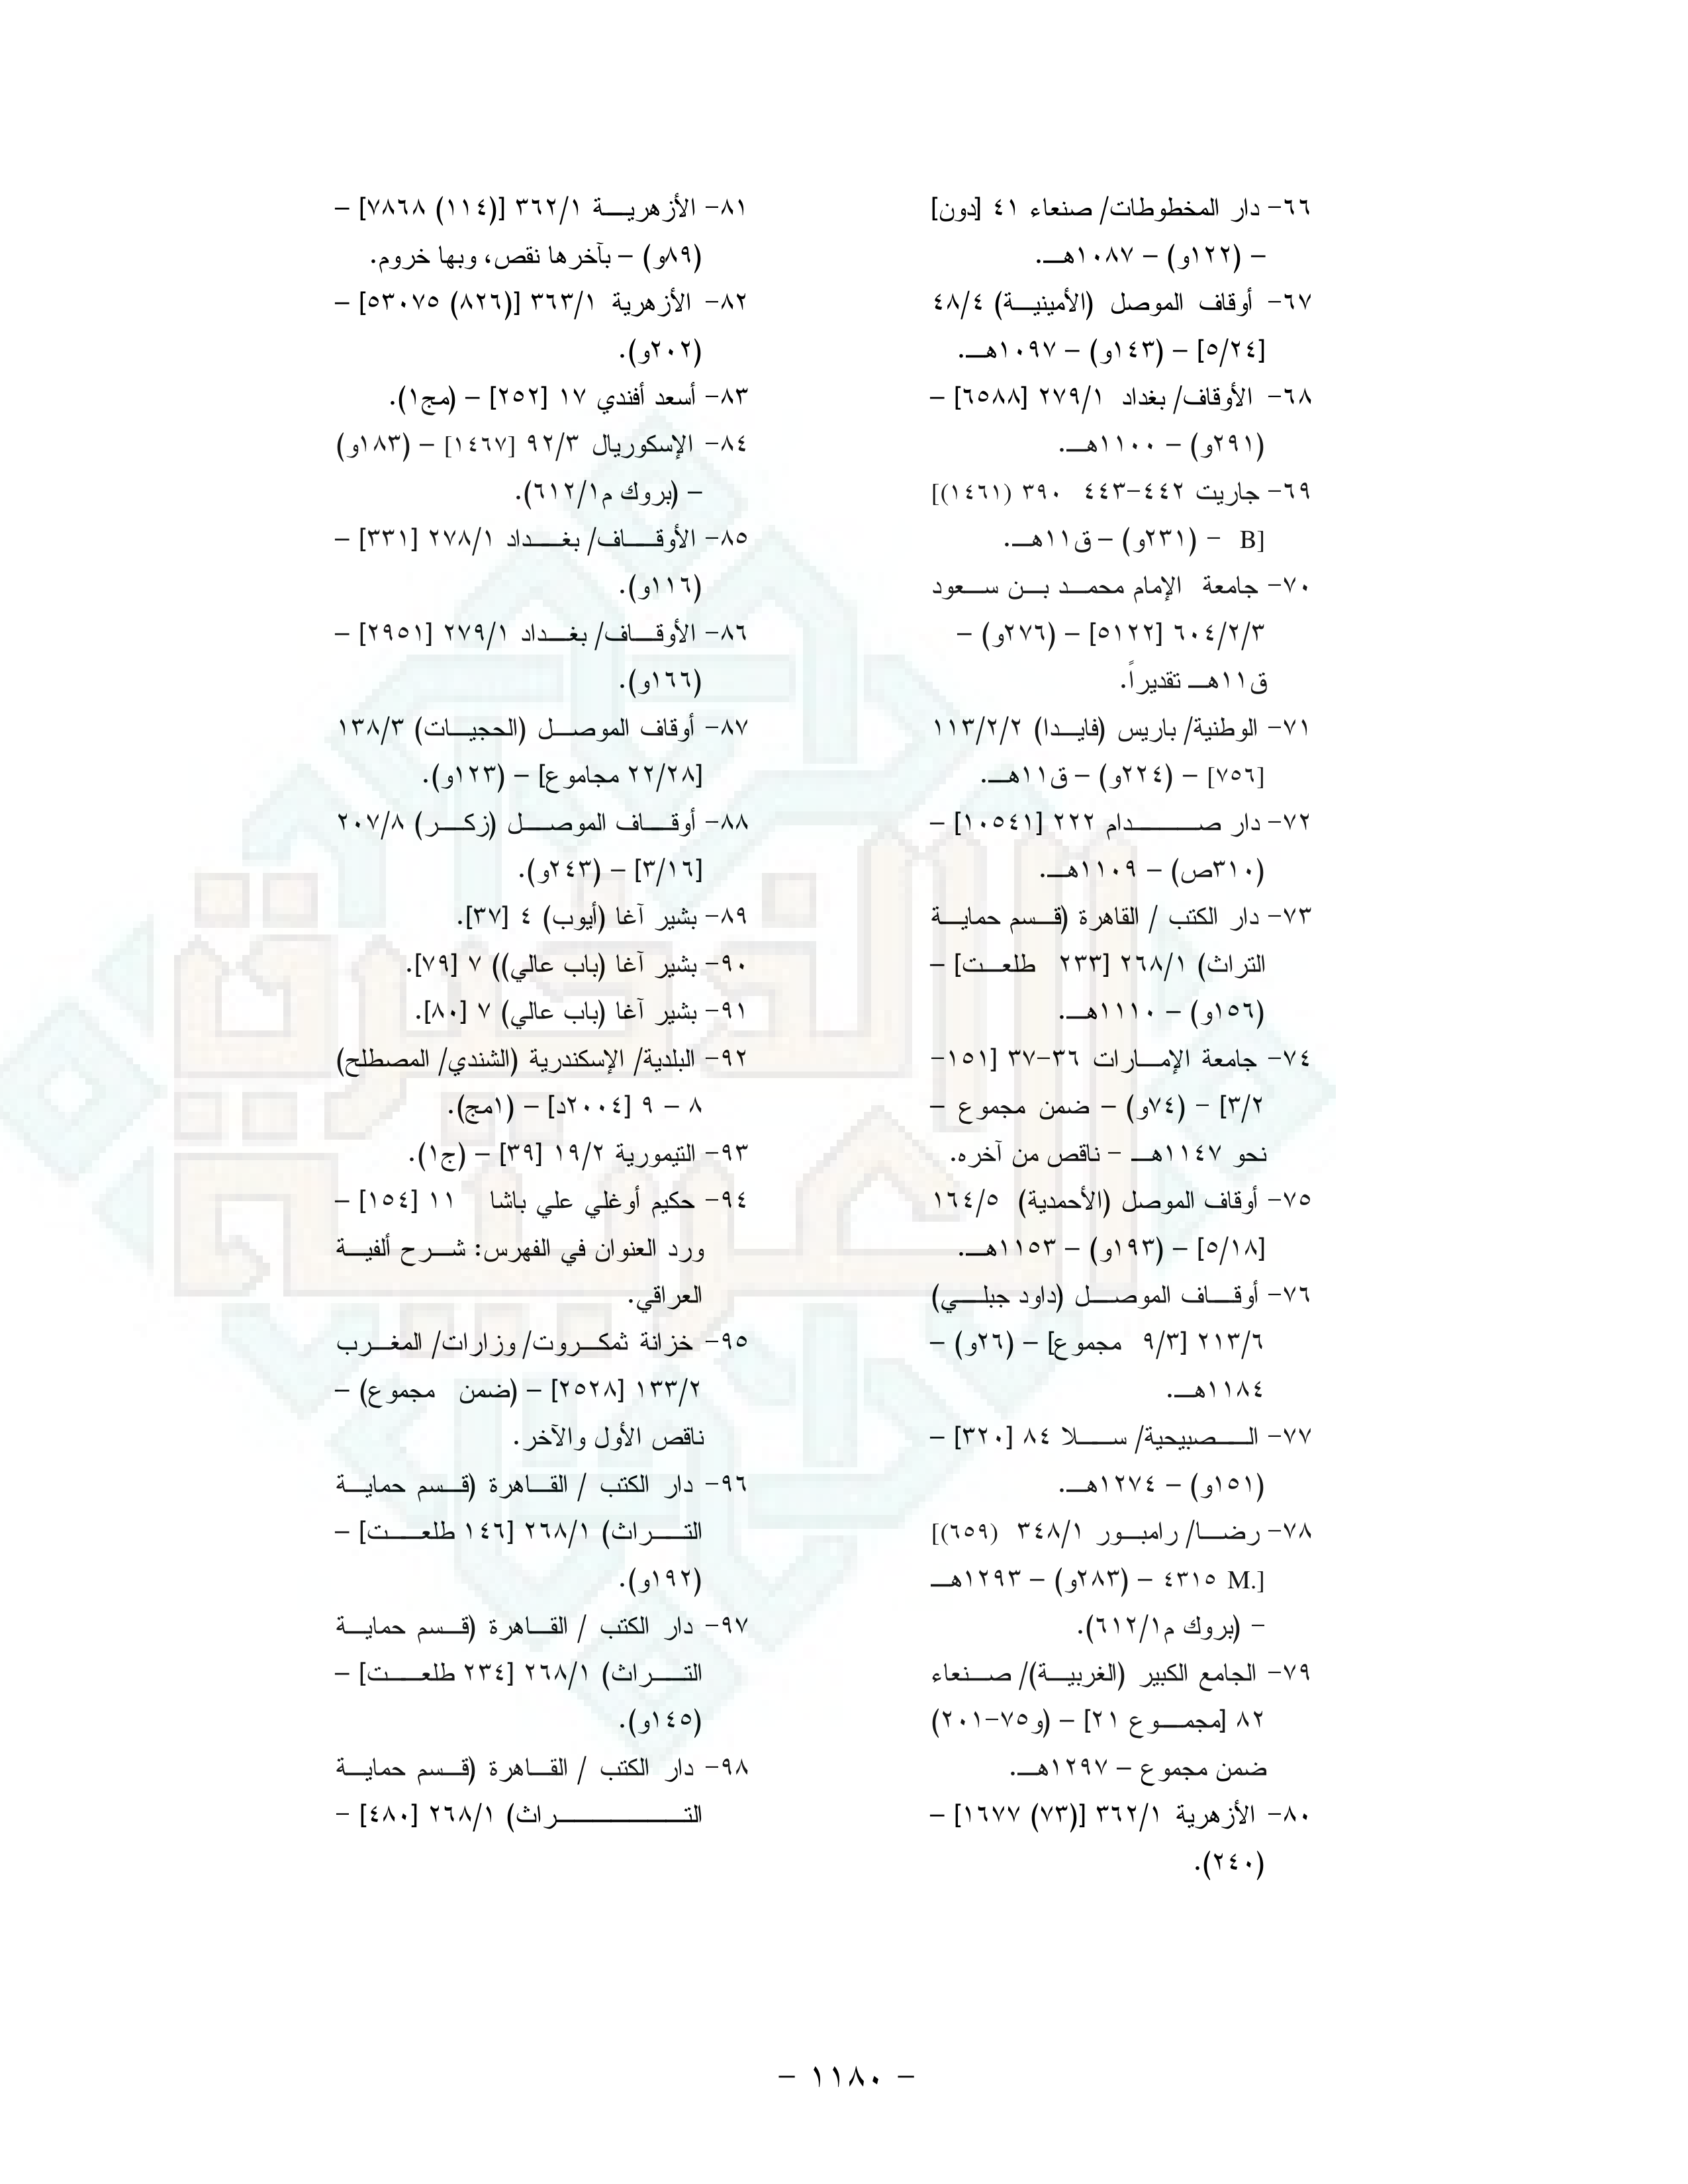 ٦٦- دار المخطوطات/ صنعاء ٤١ [دون]
– (١٢٢و) – ١٠٨٧هـ.
٦٧- أوقاف الموصل (الأمينية) ٤٨/٤
[٥/٢٤] – (١٤٣و) – ١٠٩٧هـ.
٦٨- الأوقاف/ بغداد ٢٧٩/١ [٦٥٨٨] –
(٢٩١و) – ١١٠٠هـ.
٦٩- جاريت ٤٤٢-٤٤٣ ٣٩٠ (١٤٦١)]
[B – (٢٣١و) – ق١١هـ.
٧٠- جامعة الإمام محمد بن سعود
٦٠٤/٢/٣ [٥١٢٢] – (٢٧٦و) –
ق١١هـ تقديراً.
٧١- الوطنية/ باريس (فايدا) ١١٣/٢/٢
[٧٥٦] – (٢٢٤و) – ق١١هـ.
٧٢- دار صدام ٢٢٢ [١٠٥٤١] –
(٣١٠ص) – ١١٠٩هـ.
٧٣- دار الكتب / القاهرة (قسم حماية
التراث) ٢٦٨/١ [٢٣٣ طلعت] –
(١٥٦و) – ١١١٠هـ.
٧٤- جامعة الإمارات ٣٦-٣٧ [١٥١-
٣/٢] – (٧٤و) – ضمن مجموع –
نحو ١١٤٧هـ – ناقص من آخره.
٧٥- أوقاف الموصل (الأحمدية) ١٦٤/٥
[٥/١٨] – (١٩٣و) – ١١٥٣هـ.
٧٦- أوقاف الموصل (داود جبلي)
٢١٣/٦ [٩/٣ مجموع] – (٢٦و) –
١١٨٤هـ.
٧٧- الصبيحية/ سلا ٨٤ [٣٢٠] –
(١٥١و) – ١٢٧٤هـ.
٧٨- رضا/ رامبور ٣٤٨/١ (٦٥٩)]
[.M ٤٣١٥ – (٢٨٣و) – ١٢٩٣هـ
– (بروك م٦١٢/١).
٧٩- الجامع الكبير (الغربية)/ صنعاء
٨٢ [مجموع ٢١] – (و٧٥-٢٠١)
ضمن مجموع – ١٢٩٧هـ.
٨٠- الأزهرية ٣٦٢/١ [(٧٣) ١٦٧٧] –
(٢٤٠).
٨١- الأزهرية ٣٦٢/١ [(١١٤) ٧٨٦٨] –
(٨٩و) – بآخرها نقص، وبها خروم.
٨٢- الأزهرية ٣٦٣/١ [(٨٢٦) ٥٣٠٧٥] –
(٢٠٢و).
٨٣- أسعد أفندي ١٧ [٢٥٢] – (مج١).
٨٤- الإسكوريال ٩٢/٣ [١٤٦٧] – (١٨٣و)
– (بروك م٦١٢/١).
٨٥- الأوقاف/ بغداد ٢٧٨/١ [٣٣١] –
(١١٦و).
٨٦- الأوقاف/ بغداد ٢٧٩/١ [٢٩٥١] –
(١٦٦و).
٨٧- أوقاف الموصل (الحجيات) ١٣٨/٣
[٢٢/٢٨ مجاموع] – (١٢٣و).
٨٨- أوقاف الموصل (زكر) ٢٠٧/٨
[٣/١٦] – (٢٤٣و).
٨٩- بشير آغا (أيوب) ٤ [٣٧].
٩٠- بشير آغا (باب عالي)) ٧ [٧٩].
٩١- بشير آغا (باب عالي) ٧ [٨٠].
٩٢- البلدية/ الإسكندرية (الشندي/ المصطلح)
٨ – ٩ [٢٠٠٤د] – (١مج).
٩٣- التيمورية ١٩/٢ [٣٩] – (ج١).
٩٤- حكيم أوغلي علي باشا ١١ [١٥٤] –
ورد العنوان في الفهرس: شرح ألفية
العراقي.
٩٥- خزانة ثمكروت/ وزارات/ المغرب
١٣٣/٢ [٢٥٢٨] – (ضمن مجموع) –
ناقص الأول والآخر.
٩٦- دار الكتب / القاهرة (قسم حماية
التراث) ٢٦٨/١ [١٤٦ طلعت] –
(١٩٢و).
٩٧- دار الكتب / القاهرة (قسم حماية
التراث) ٢٦٨/١ [٢٣٤ طلعت] –
(١٤٥و).
٩٨- دار الكتب / القاهرة (قسم حماية
التراث) ٢٦٨/١ [٤٨٠] –
– ١١٨٠ –